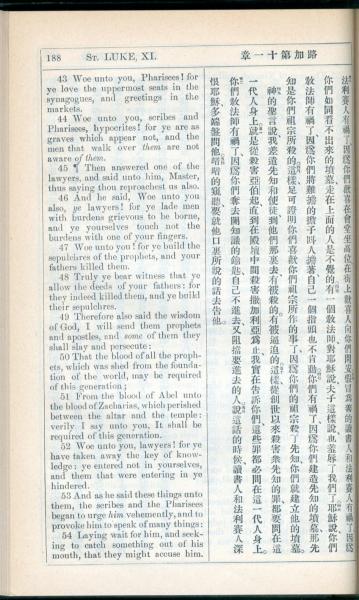 188 ST. LUKE, XI.
路加第十一章
43 Woe unto you, Pharisees! for
ye love the uppermost seats in the
synagogues, and greetings in the
markets.
44 Woe unto you, scribes and
Pharisees, hypocrites! for ye are as
graves which appear not, and the
men that walk over them are not
aware of them.
45 ¶ Then answered one of the
lawyers, and said unto him, Master,
thus saying thou reproachest us also.
46 And he said, Woe unto you
also, ye lawyers! for ye lade men
with burdens grievous to be borne,
and ye yourselves touch not the
burdens with one of your fingers.
47 Woe unto you! for ye build the
sepulchres of the prophets, and your
fathers killed them.
48 Truly ye bear witness that ye
allow the deeds of your fathers: for
they indeed killed them, and ye build
their sepulchres.
49 Therefore also said the wisdom
of God, I will send them prophets
and apostles, and some of them they
shall slay and persecute:
50 That the blood of all the proph-
ets, which was shed from the founda-
tion of the world, may be required
of this generation;
51 From the blood of Abel unto
the blood of Zacharias, which perished
between the altar and the temple:
verily I say unto you, It shall be
required of this generation.
52 Woe unto you, lawyers! for ye
have taken away the key of know-
ledge: ye entered not in yourselves,
and them that were entering in ye
hindered.
53 And as he said these things unto
them, the scribes and the Pharisees
began to urge him vehemently, and to
provoke him to speak of many things:
54 Laying wait for him, and seek-
ing to catch something out of his
mouth, that they might accuse him.
法利賽人有禍了因爲你們喜歡在會堂坐高位在街上歡喜人向你們問安
你們如同看不出來的墳墓走在上面的人是不覺的有一個敎法師對耶穌說夫子這樣說也羞辱了我們了耶穌說你們
敎法師有禍了因爲你們將難擔的擔子叫人擔著自己一個指頭也不肯動你們有禍了因爲你們建造先知的墳墓那先
知是你們祖宗所殺的這樣足可證明你們喜歡你們祖宗所作的事了因爲你們的祖宗殺了先知你們就建立他的墳墓
神的聖言說我差遣先知和使徒到他們那裏去有被殺的有被逼迫的這樣從創世以來殺害衆先知的罪都要問在這
一代人身上就是從殺害亞伯起直到在殿壇中間殺害撒加利亞爲止我實在告訴你們這些罪都必問在這一代人身上
你們敎法師有禍了因爲你們奪去開知識的鑰匙自己不進去又阻擋要進去的人說這話的時候讀書人和法利賽人深
恨耶穌多端盤問他暗暗的窺聽要就他口裏所說的話去告他